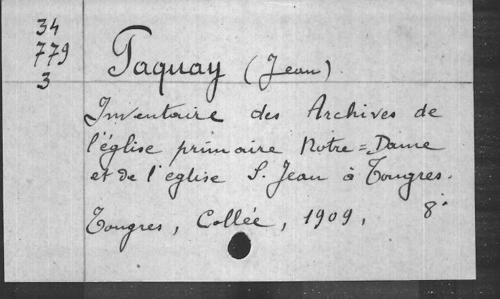 34
779
3
Paquay (Jean).
Inventaire des Archives de
l'église primaire Notre=Dame
et de l'eglise S. Jean à Tongres.
Tongres, Collée, 1909, 8°